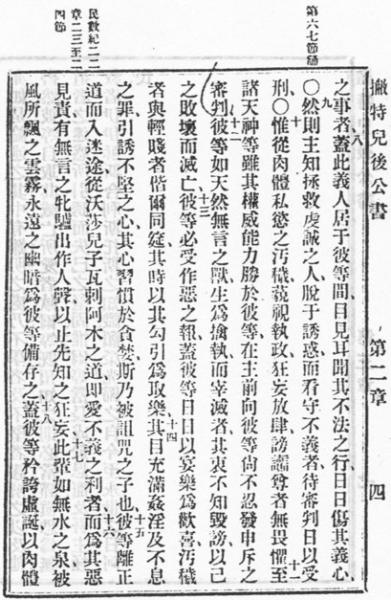 撇特兒後公書
第二章
四
第六七節極
民數紀二二
章二三至二
四節
八
之事者蓋此義人居于彼等間日見耳聞其不法之行日日傷其義心
九
○然則主知拯救虔誠之人脫于誘惑而看守不義者待審判日以受
十
刑○惟從肉體私慾之汚穢藐視執政狂妄放肆謗讟尊者無畏懼至
十一
諸天神等雖其權威能力勝於彼等在主前向彼等尙不忍發申斥之
十二
審判彼等如天然無言之獸生爲擒執而宰滅者其衷不知毀謗以己
十三
之敗壞而滅亡彼等必受作惡之報蓋彼等日日以宴樂爲歡喜汚穢
十四
者與輕賤者偕爾同筵其時以其勾引爲取樂其目充滿姦淫及不息
之罪引誘不堅之心其心習慣於貪婪斯乃被詛咒之子也彼等離正
十五
道而入迷途從沃莎兒子瓦剌阿木之道即愛不義之利者而爲其惡
十六
見責有無言之牝驢出作人聲以止先知之狂妄此輩如無水之泉被
十七
風所飄之雲霧永遠之幽暗爲彼等備存之蓋彼等矜誇虛誕以肉體
十八